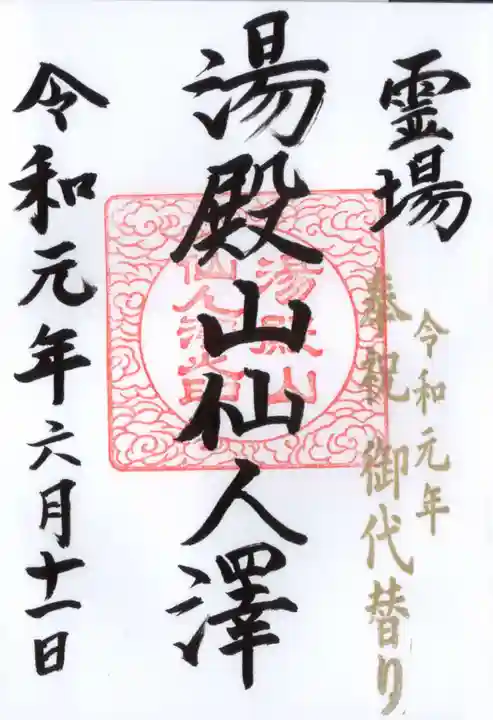 霊場
令和元年
奉祝 御代替り
湯殿山仙人澤
湯殿山
令和元年六月十一日